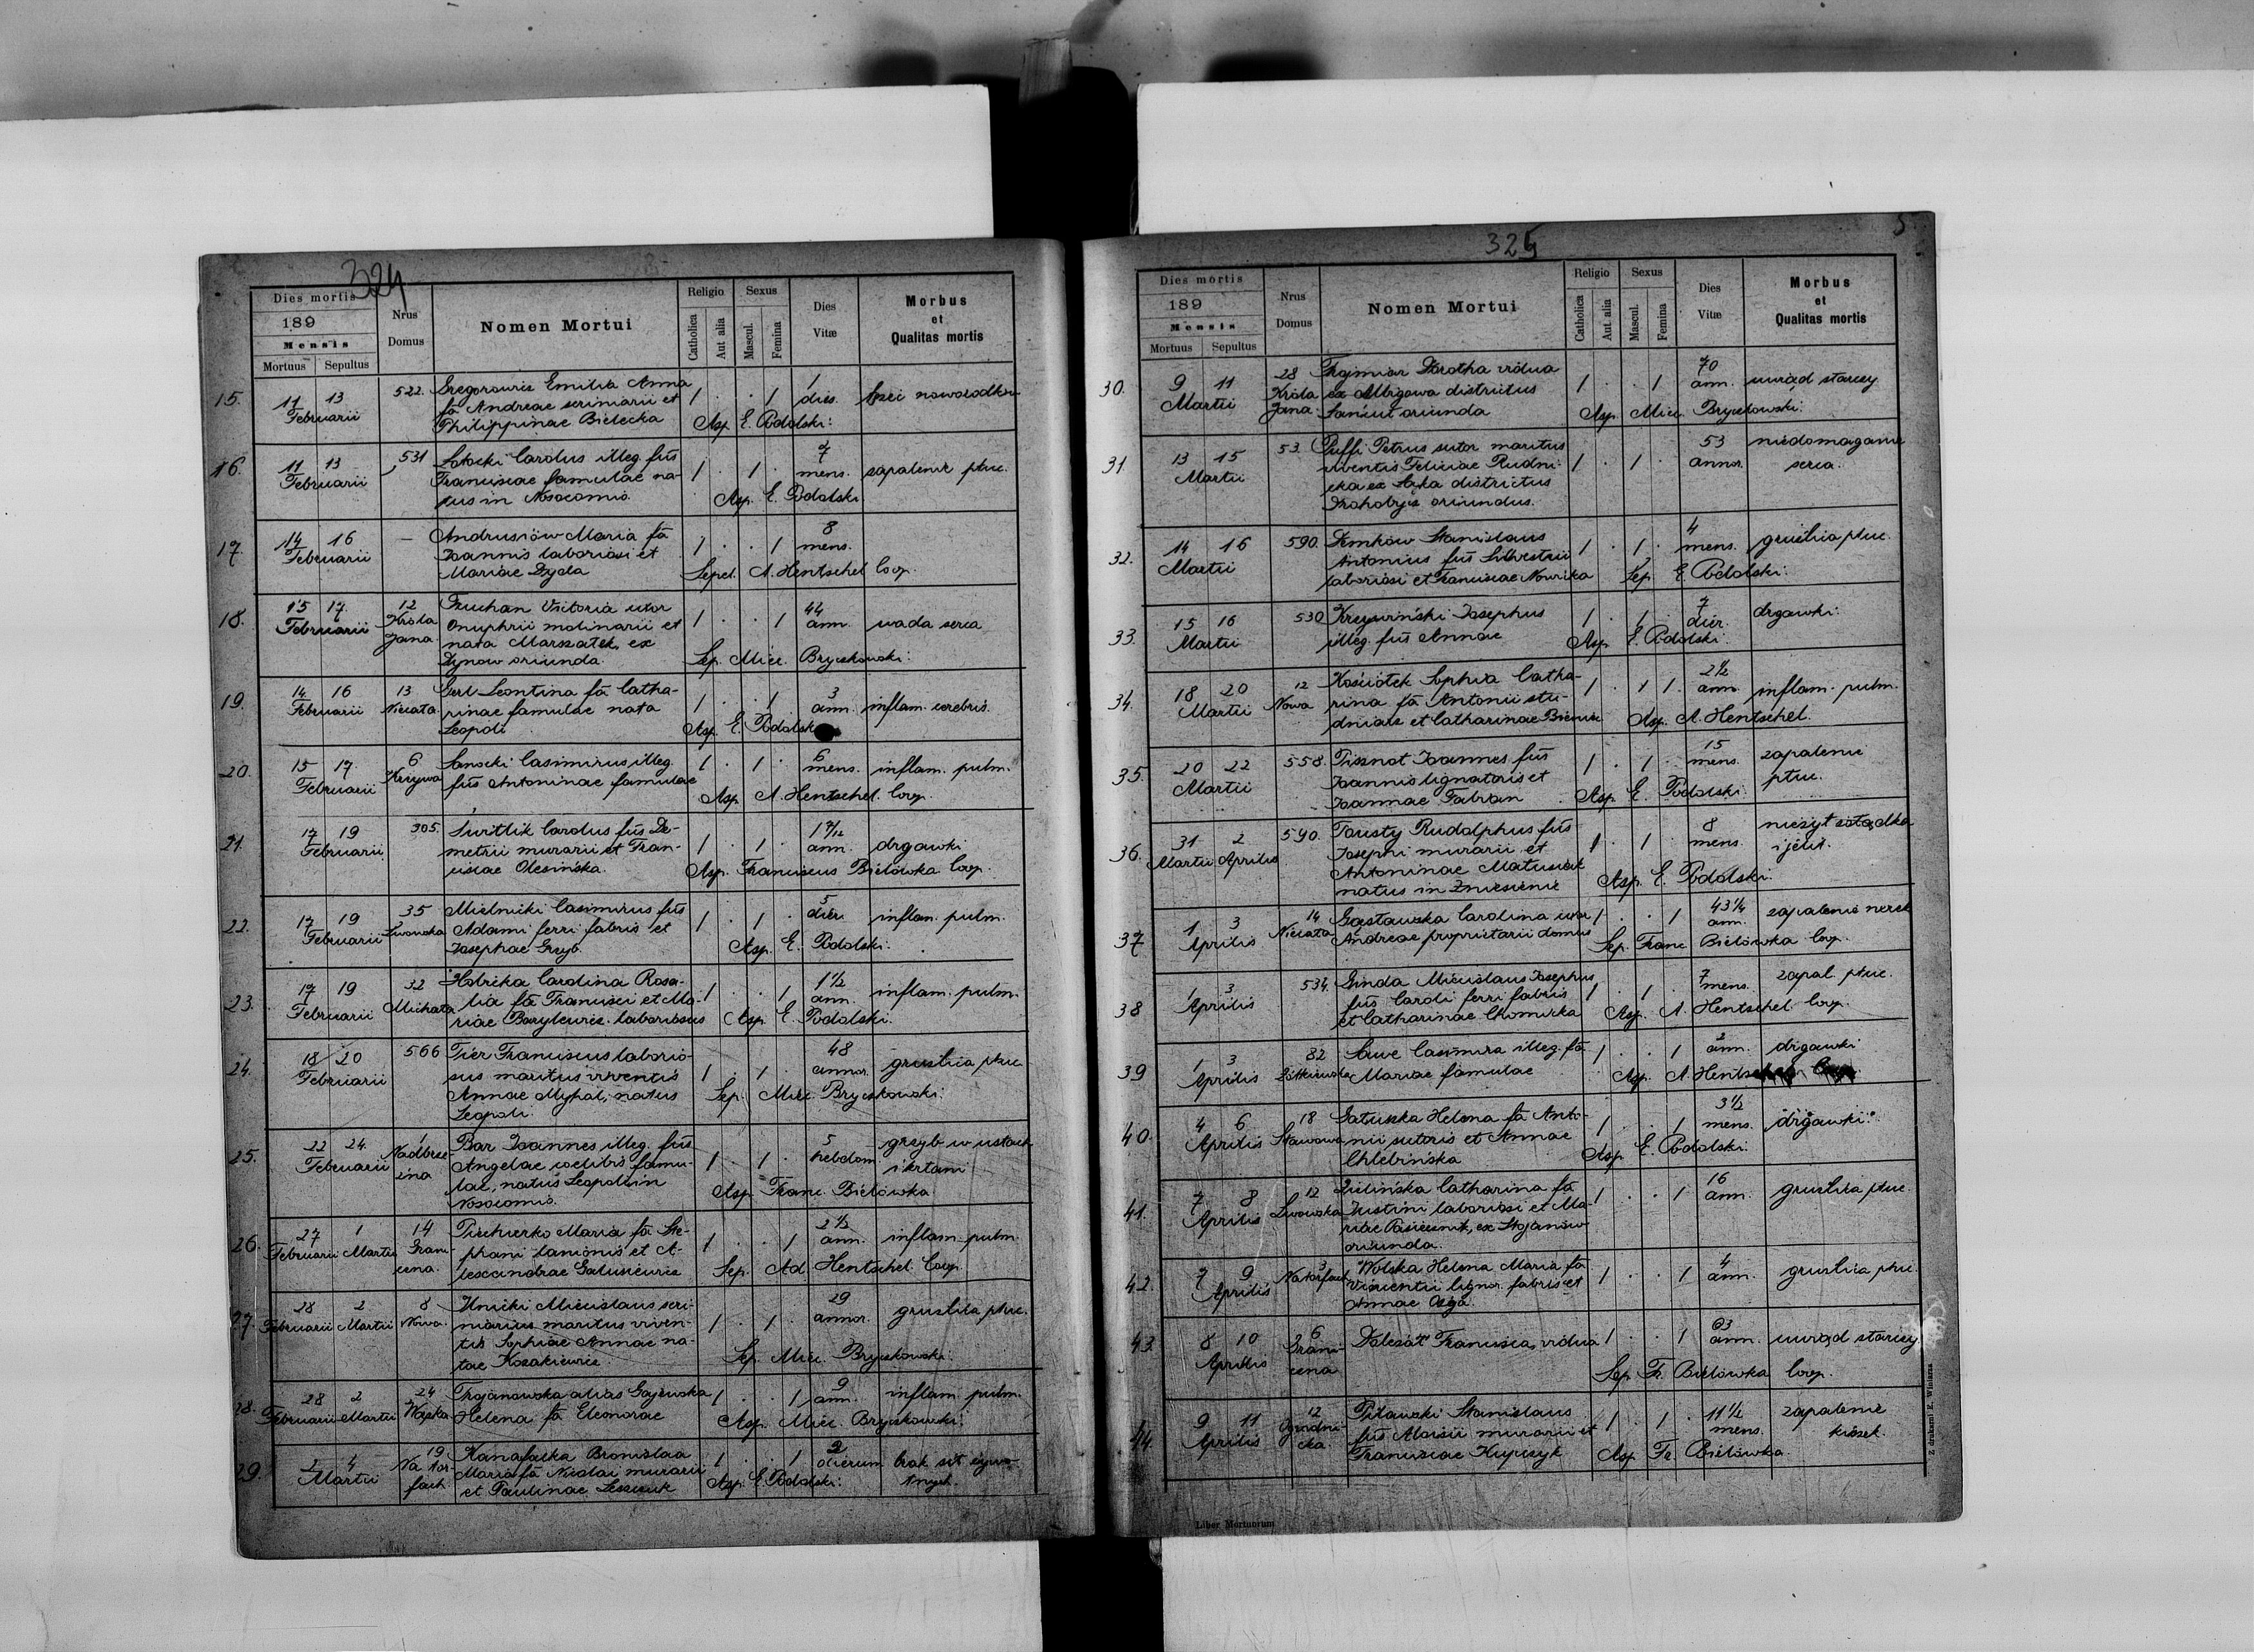 324
Dies mortis
189
Mensis
Mortuus Sepultus
Nrus Domus
Nomen Mortui
Religio
Catholica Aut. alia
Sexus
Mascul. Femina
Dies Vitæ
Morbus et Qualitas mortis
15. 11 13 Februarii 522. Gregorowicz Emilia Anna 1 . . 1 1 dies.
fa Andreae scriniarii et
Philippinae Bielecka Asp. E. Podolski:
16. 11 13 Februarii 531 Carolus illeg. fus 1 . 1 . 7 mens. zapalenie płuc.
Franciscae famulae na-
tus in Nosocomio. Asp. E. Podolski
17. 14 16 Februarii — Andrusiów Maria fa 1 . . 1 8 mens.
Joannis laboriosi et
Mariae Dyda Sepel. A. Hentschel Coop.
18. 15 17. Februarii 12 Króla Jana Victoria uxor 1 . . 1 44 ann. wada serca
Onuphrii molinarii et
nata Marszałek, ex
Dynow oriunda. Sep. Miec. Bryczkowski:
19. 14 16 Februarii 13 Niecała. Gerl Leontina fa Catha- 1 . . 1 3 ann. inflam. cerebris.
rinae famulae nata
Leopoli Asp. E. Podolski
20. 15 17. Februarii 6 Krzywa Sanocki Casimirus illeg. 1 . 1 . 6 mens. inflam. pulm.
fus Antoninae famulae
Asp. A. Hentschel. Coop.
21. 17 19 Februarii 305. Switlik Carolus fus De- 1 . 1 . 1 7/12 ann. drgawki
metrii murarii et Fran-
ciscae Olesińska. Asp. Franciscus Bielówka Coop.
22. 17 19 Februarii 35 Lwowska Mielnicki Casimirus fus 1 . 1 . 5 dier. inflam. pulm.
Adami ferri fabris et
Josephae Grzyb. Asp. E. Podolski.
23. 17 19 Februarii 32 Michała Carolina Rosa- 1 . . 1 1 1/2 ann. inflam. pulm.
lia fa Francisci et Ma-
riae laboriosus Asp. E. Podolski.
24. 18 20 Februarii 566 Franciscus laborio- 1 . 1 . 48 annor. gruźlica płuc
sus maritus viventis
Annae Myhal, natus
Leopoli. Sep. Miec. Bryczkowski.
25. 22 24. Februarii 1 Nadbrze żna Bar Joannes, illeg. fus 1 . 1 . 5 hebdom. grzyb w ustach
Angelae coelibis famu- i krtani
lae, natus Leopoli in
Nosocomio. Asp. Franc. Bielówka
26. 27 Februarii 1 Martii 14 Grani- czna. Maria fa Ste- 1 . . 1 2 1/2 ann. inflam. pulm.
phani lanionis et A-
lexandrae Sep. Ad. Hentschel. Coop.
27. 28 Februarii 2 Martii 8 Nowa. Miecislaus scri- 1 . 1 . 29 annor. gruźlica płuc.
niarius maritus viven-
tis Sophiae Annae na-
tae Kozakiewicz. Sep. Miec. Bryczkowski.
28. 28 Februarii 2 Martii 24 Wązka Trojanowska alias Gajewska 1 . . 1 9 ann. inflam. pulm.
Helena fa Eleonorae Asp. Miec. Bryczkowski.
29. 2 4 Martii 19 Na tor- fach. Kanafacka Bronislaa 1 . . 1 2 dierum brak sił żywo-
Maria fa Nicolai murarii tnych.
et Paulinae Leszczuk Asp. E. Podolski:
325
5
Dies mortis
189
Mensis
Mortuus Sepultus
Nrus Domus
Nomen Mortui
Religio
Catholica Aut. alia
Sexus
Mascul. Femina
Dies Vitæ
Morbus et Qualitas mortis
30. 9 11 Martii 28 Króla Jana Dorotha vidua 1 . . 1 70 ann. uwiąd starczy
ex Albigowa districtus
Łańcut oriunda Asp. Miec. Bryczkowski.
31. 13 15 Martii 53. Puffi Petrus sutor maritus 1 . 1 . 53 annor. niedomaganie
viventis Feliciae Rudni- serca.
cka ex Łąka districtus
Drohobycz oriundus.
32. 14 16 Martii 590. Demków Stanislaus 1 . 1 . 4 mens. gruźlica płuc.
Antonius fus Silvestrii
laboriosi et Franciscae Nowicka Sep. E. Podolski.
33. 15 16 Martii 530 Krzywiński Josephus 1 . 1 . 7 dier. drgawki:
illeg. fus Annae Asp. E. Podolski.
34. 18 20 Martii 12 Nowa Kościółek Sophia Catha- 1 . 1 1. 2 1/2 ann. inflam. pulm.
rina fa Antonii stu-
dniarz et Catharinae Asp. A. Hentschel.
35. 20 22 Martii 558. Joannes fus 1 . 1 . 15 mens. zapalenie
Joannis lignatoris et płuc.
Joannae Fabian Asp. E. Podolski.
36. 31 Martii 2 Aprilis 590. Fausty Rudolphus fus 1 . 1 . 8 mens. nieżyt żołądka
Josephi murarii et i jelit.
Antoninae Matusiak
natus in Zniesienie Asp. E. Podolski.
37 1 3 Aprilis 14 Niecała Carolina uxor 1 . . 1 43 1/4 ann. zapalenie nerek
Andreae proprietarii domus Sep. Franc Bielówka Coop.
38 1 3 Aprilis 534. Ginda Miecislaus Josephus 1 . 1 . 7 mens. zapal. płuc.
fus Caroli ferri fabris
et Catharinae Chomicka Asp. A. Hentschel Coop.
39 1 3 Aprilis 82 Żółkiewska Sawe Casimira illeg. fa 1 . . 1 2 ann. drgawki
Mariae famulae Asp. A. Hentschel
40. 4 6 Aprilis 18 Stawowa Helena fa Anto- 1 . . 1 3 1/2 mens. drgawki:
nii sutoris et Annae
Chlebińska Asp. E. Podolski.
41. 7 8 Aprilis 12 Lwowska Zielińska Catharina fa 1 . . 1 16 ann. gruźlica płuc.
Justini laboriosi et Ma-
riae Pasiecznik, ex Stojanów
oriunda.
42. 7 9 Aprilis 3 Na torfach Wolska Helena Maria fa 1 . . 1 4 ann. gruźlica płuc.
Vincentii lignor. fabris et
Annae Ożga.
43. 8 10 Aprilis 6 Grani- czna Francisca, vidua 1 . . 1 63 ann. uwiąd starczy
Sep. Fr. Bielówka Coop.
44. 9 11 Aprilis 12 Ogrodni- cka. Pitawski Stanislaus 1 . 1 . 11 1/2 mens. zapalenie
fus Aloisii murarii et kiszek.
Franciscae Kupczyk Asp. Fr. Bielówka
Liber Mortuorum
Z drukarni E. Winiarza